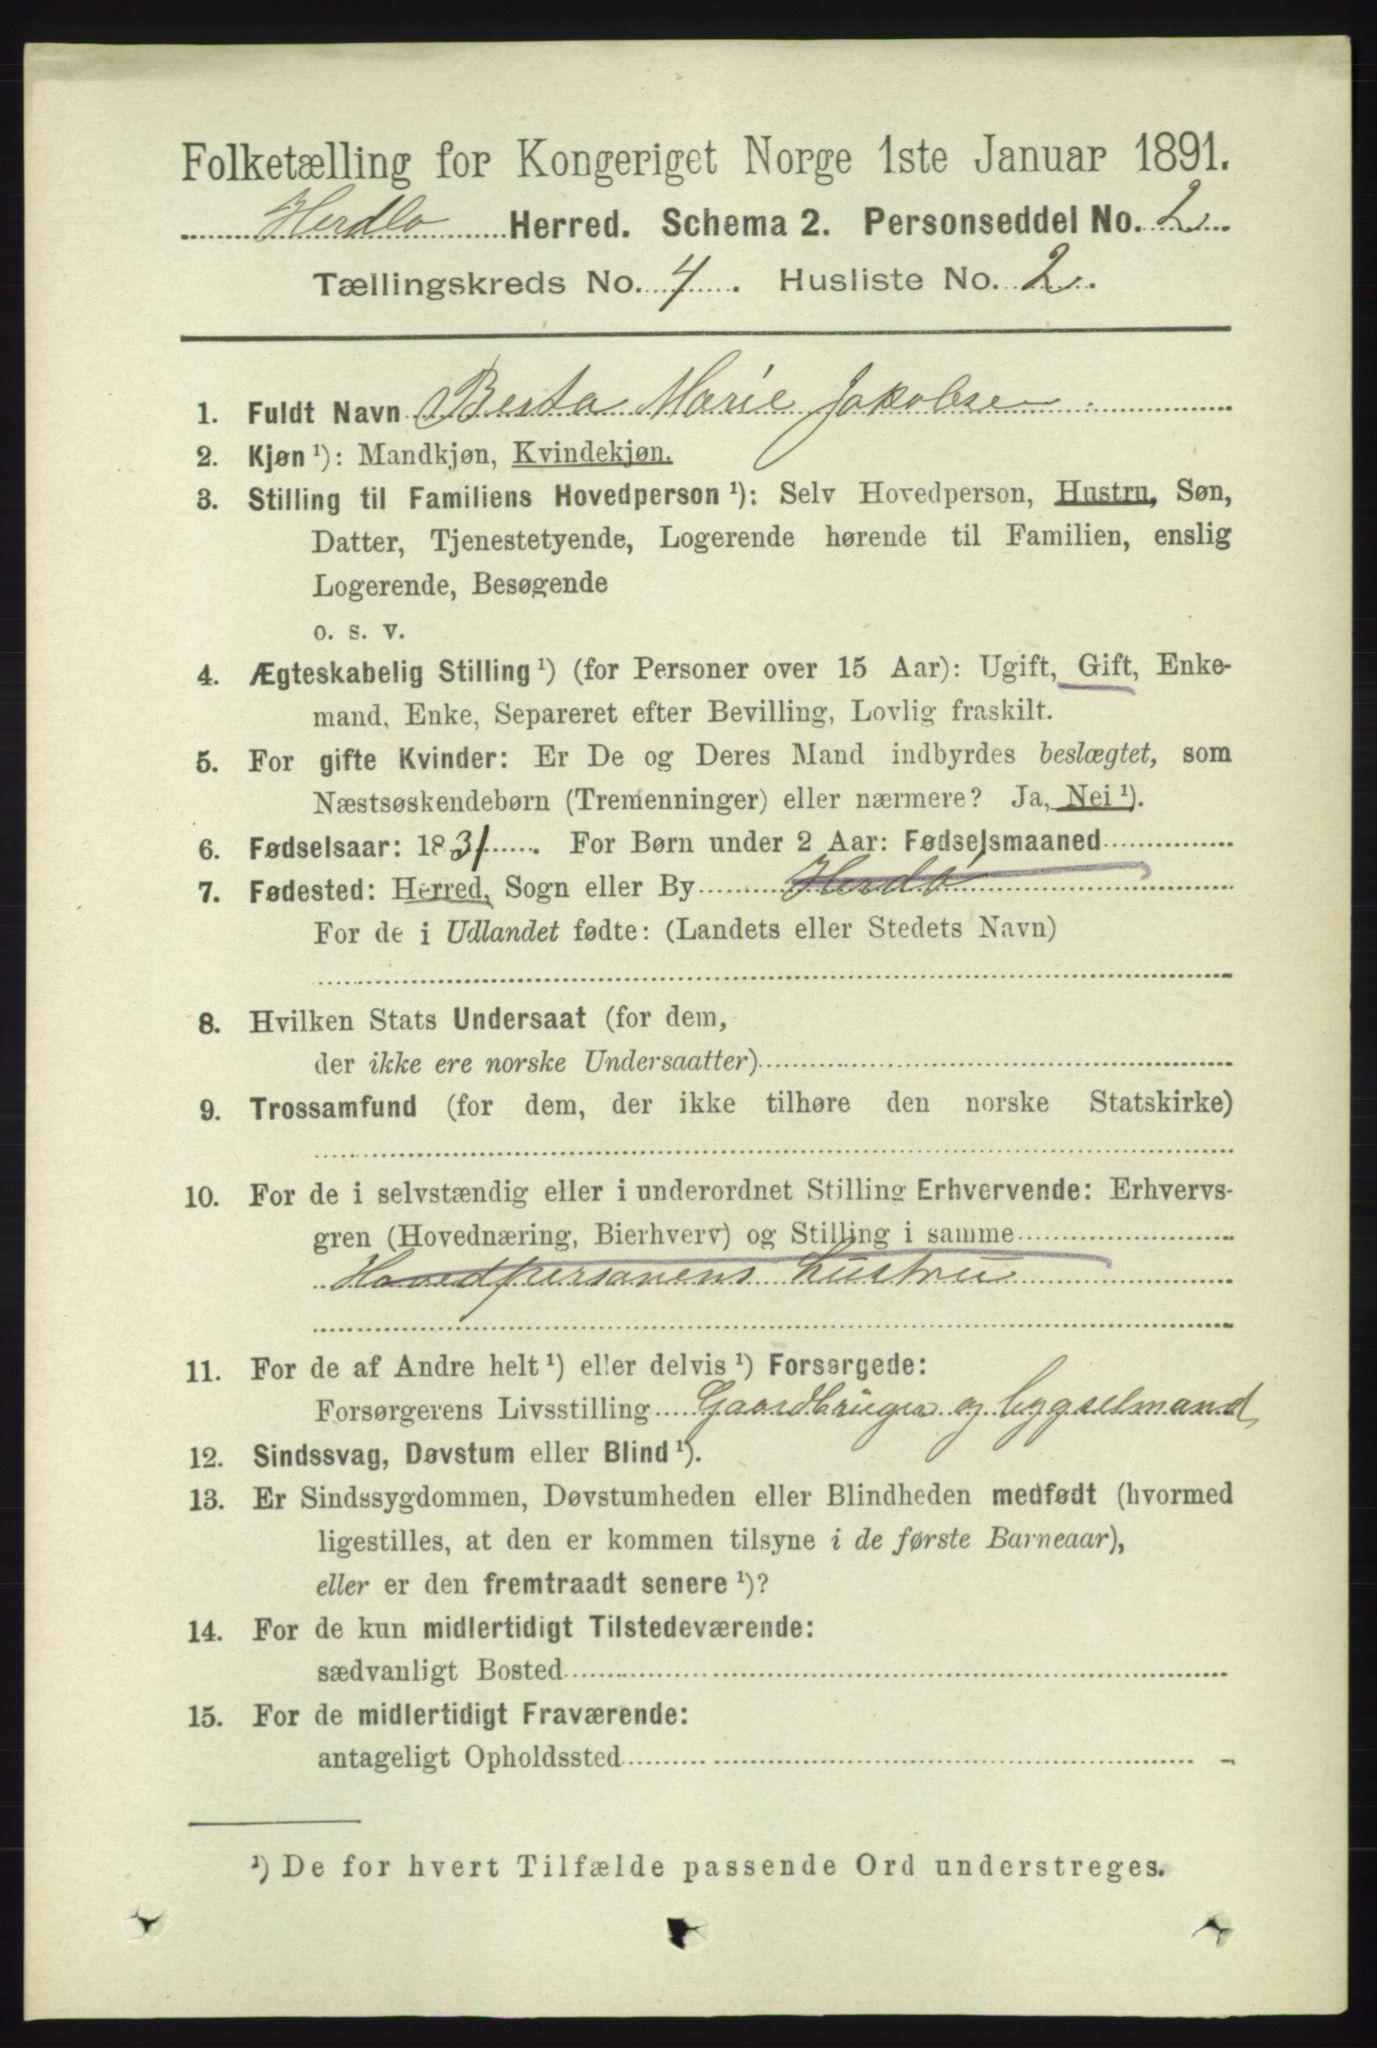 Folketælling for Kongeriget Norge 1ste Januar 1891.
Herdlo Herred. Schema 2. Personseddel No. 2.
Tællingskreds No. 4. Husliste No. 2.
1. Fuldt Navn Berta Marie Jakobsen
2. Kjøn ¹): Mandkjøn, Kvindekjøn.
3. Stilling til Familiens Hovedperson ¹): Selv Hovedperson, Hustru, Søn,
Datter, Tjenestetyende, Logerende hørende til Familien, enslig
Logerende, Besøgende
o. s. v.
4. Ægteskabelig Stilling ¹) (for Personer over 15 Aar): Ugift, Gift, Enke-
mand, Enke, Separeret efter Bevilling, Lovlig fraskilt.
5. For gifte Kvinder: Er De og Deres Mand indbyrdes beslægtet, som
Næstsøskendebørn (Tremenninger) eller nærmere? Ja, Nei ¹).
6. Fødselsaar: 1831. For Børn under 2 Aar: Fødselsmaaned
7. Fødested: Herred, Sogn eller By Herdlo
For de i Udlandet fødte: (Landets eller Stedets Navn)
8. Hvilken Stats Undersaat (for dem,
der ikke ere norske Undersaatter)
9. Trossamfund (for dem, der ikke tilhøre den norske Statskirke)
10. For de i selvstændig eller i underordnet Stilling Erhvervende: Erhvervs-
gren (Hovednæring, Bierhverv) og Stilling i samme
Hovedpersonens hustru
11. For de af Andre helt ¹) eller delvis ¹) Forsørgede:
Forsørgerens Livsstilling Gaardbruger og bygselmand
12. Sindssvag, Døvstum eller Blind ¹).
13. Er Sindssygdommen, Døvstumheden eller Blindheden medfødt (hvormed
ligestilles, at den er kommen tilsyne i de første Barneaar),
eller er den fremtraadt senere ¹)?
14. For de kun midlertidigt Tilstedeværende:
sædvanligt Bosted
15. For de midlertidigt Fraværende:
antageligt Opholdssted
¹) De for hvert Tilfælde passende Ord understreges.